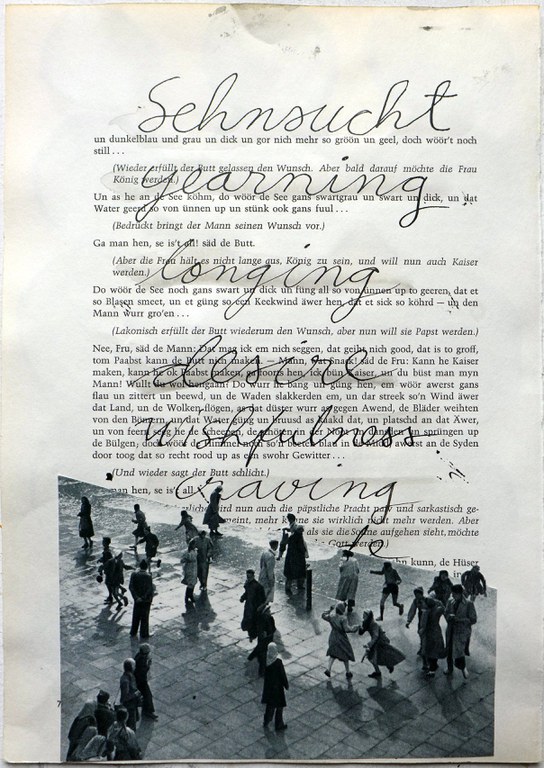 Sehnsucht
un dunkelblau und grau un dick un gor nich mehr so gröön un geel, doch wöör't noch
still . . .
(Wieder erfüllt der Butt gelassen den Wunsch. Aber bald darauf möchte die Frau
König werden.)
yearning
Un as he an de See köhm, do wöör de See gans swartgrau un swart un dick, un dat
Water geerd so von ünnen up un stünk ook gans fuul . . .
(Bedrückt bringt der Mann seinen Wunsch vor.)
Ga man hen, se is't all! säd de Butt.
(Aber die Frau hält es nicht lange aus, König zu sein, und will nun auch Kaiser
werden.)
longing
Do wöör de See noch gans swart un dick un füng all so von ünnen up to geeren, dat et
so Blasen smeet, un et güng so een Keekwind äwer hen, dat et sick so köhrd — un den
Mann wurr gro'en . . .
(Lakonisch erfüllt der Butt wiederum den Wunsch, aber nun will sie Papst werden.)
Nee, Fru, säd de Mann: Dat mag ick em nich seggen, dat geiht nich good, dat is to groff,
tom Paabst kann de Butt nich maken. — Mann, wat Snack! säd de Fru: Kann he Kaiser
maken, kann he ok Pabst maken. foorts hen, ick bün Kaiser, un du büst man myn
desire
Mann! Wullt du wol hengaan! Do wurr he bang un güng hen, em wöör awerst gans
flau un zittert un beewd, un de Waden slakkerden em, un dar streek so'n Wind äwer
dat Land, un de Wolken flögen, as dat düster wurr gegen Awend, de Bläder weihten
von den Böm, un dat Water güng un bruusd as kaakd dat, un platschd an dat Äwer,
wishfulness
un von feern seeg he de Scheep en, de schöten in der Noot un un springen up
de Bülgen, doch wöör de Himmel noch so'n beten blau in de Midd awerst an de Syden
door toog dat so recht rood up as een swohr Gewitter . . .
(Und wieder sagt der Butt schlicht:)
man hen, se is't all
craving
wird nun auch die päpstliche Pracht und sarkastisch ge-
meint, mehr könne sie wirklich nicht mehr werden. Aber
als sie die Sonne aufgehen sieht, möchte
Gott werden.)
kunn, de Hüser